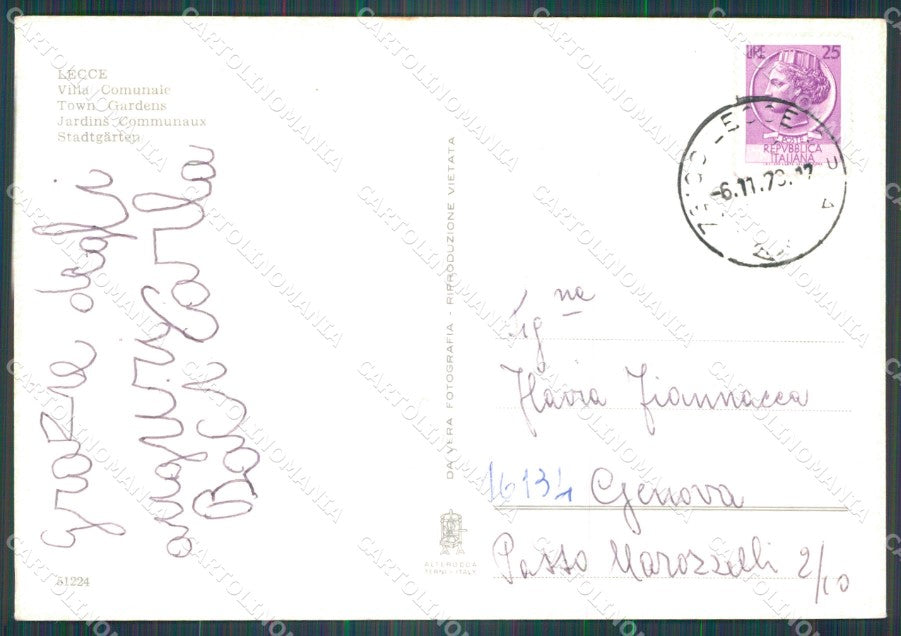 LECCE
Villa Comunale
Town Gardens
Jardins Communaux
Stadtgärten
grazie degli
auguri
Baci Carla
51224
DA VERA FOTOGRAFIA - RIPRODUZIONE VIETATA
ALTEROCCA
TERNI - ITALY
LIRE 25
POSTE
REPVBBLICA
ITALIANA
LECCE
-6.11.73.17
Sig na
Flavia Giannacca
16134 Genova
Passo Marozzelli 2/10
CARTOLINOMANIA